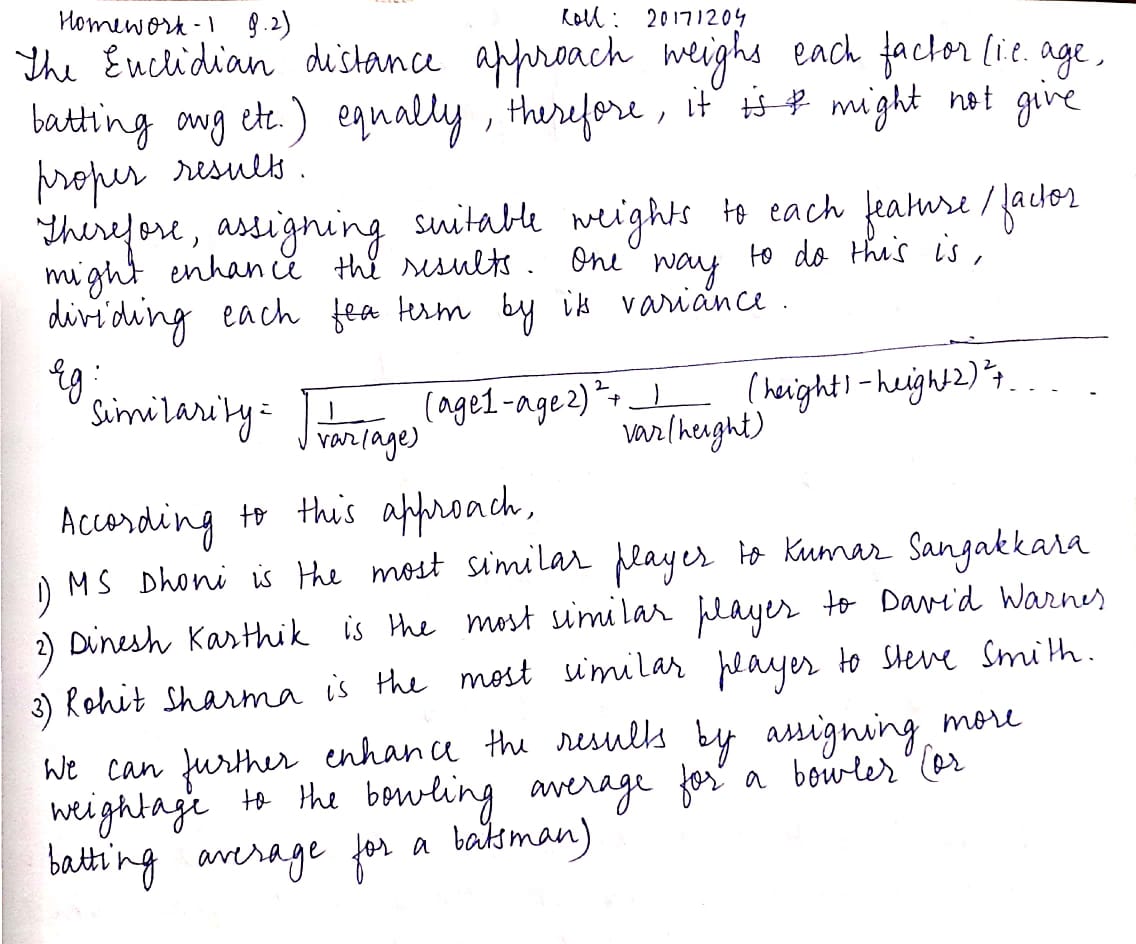 Homework-1 Q.2) Roll: 20171204
The Euclidian distance approach weighs each factor (i.e. age,
batting avg etc.) equally, therefore, it is might not give
proper results.
Therefore, assigning suitable weights to each feature/factor
might enhance the results. One way to do this is,
dividing each fea term by its variance.
Eg:
Similarity = √ 1/var(age) (age1-age2)² + 1/var(height) (height1-height2)² + ....
According to this approach,
1) MS Dhoni is the most similar player to Kumar Sangakkara
2) Dinesh Karthik is the most similar player to David Warner
3) Rohit Sharma is the most similar player to Steve Smith.
We can further enhance the results by assigning more
weightage to the bowling average for a bowler (or
batting average for a batsman)